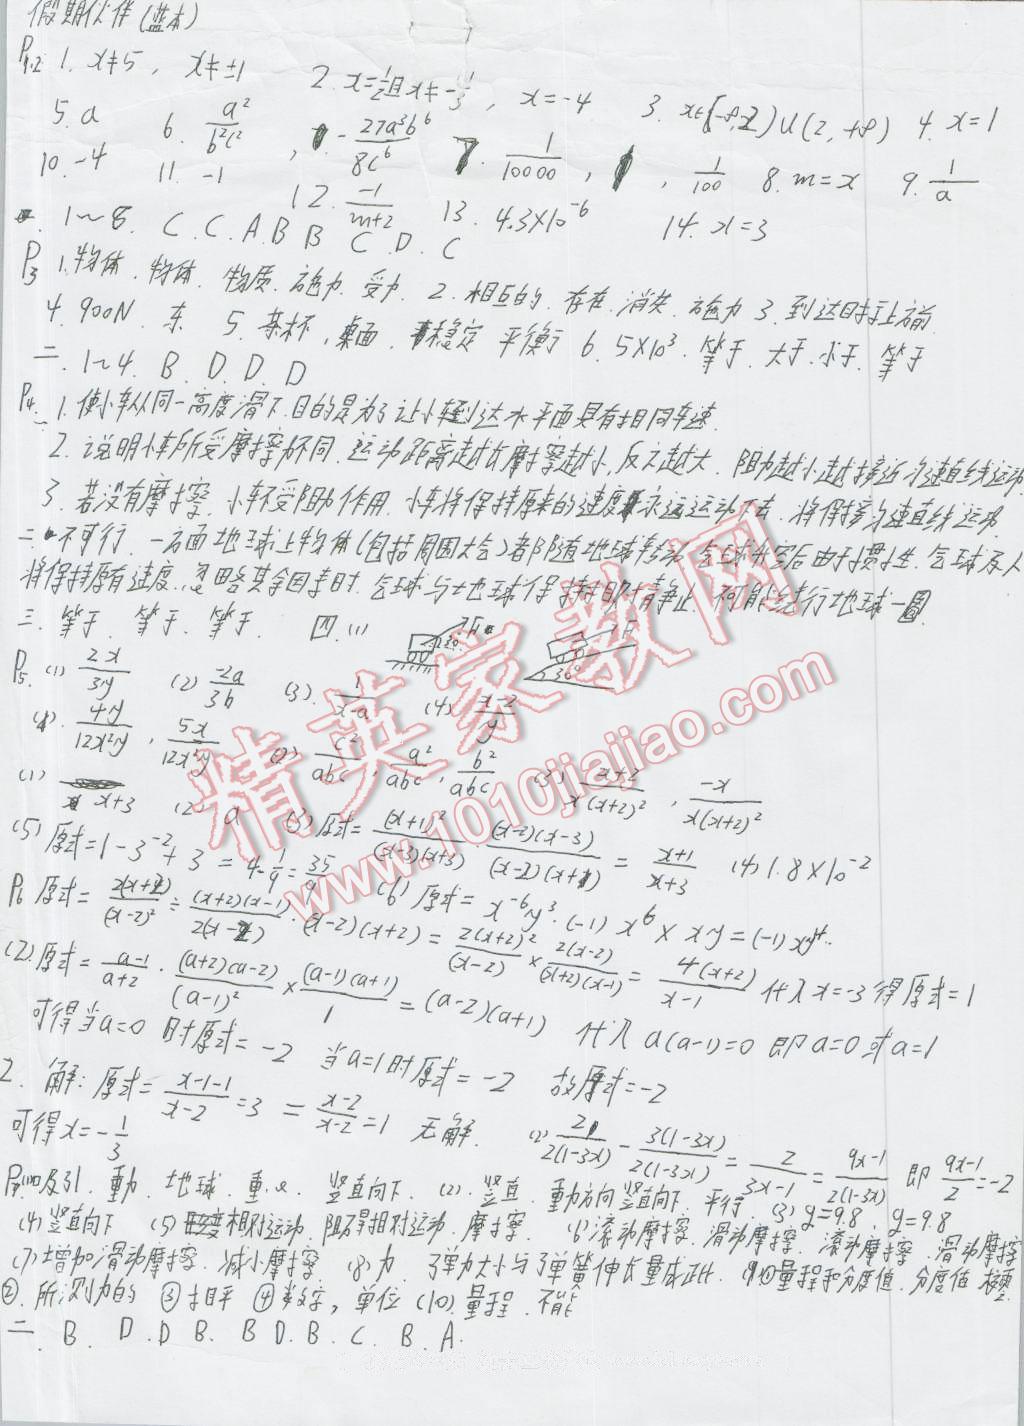 假期伙伴(蓝本)
P1.2 1. x≠5, x≠±1 2. x=1/2且x≠-1/3, x=-4 3. 4. x=1
5. a 6. a²/b²c², -27a³b⁶/8c⁶ 7. 1/10000, 1/100 8. m=x 9. 1/a
10. -4 11. -1 12. -1/m+2 13. 4.3×10⁻⁶ 14. x=3
1~8. C. C. A. B B C D. C
P3 1. 物体. 物体. 物质. 施力. 受力. 2. 相互的. 存在. 消失. 施力 3. 到达
4. 900N. 东 5. 茶杯, 桌面. 稳定 平衡 6. 5×10³. 等于. 大于. 小于. 等于
二. 1~4. B. D. D. D
P4. 一 1. 使小车从同一高度滑下. 目的是为了让小车到达水平面具有相同车速.
2. 说明小车所受摩擦不同. 运动距离越长摩擦越小, 反之越大. 阻力越小越接近匀速直线运动
3. 若没有摩擦, 小车不受阻力作用. 小车将保持原来的速度永远运动下去. 将保持匀速直线运动
二. 不可行. 一方面地球上物体(包括周围大气)都随地球转动. 气球升空后由于惯性. 气球及人
将保持原有速度. 忽略其余因素时. 气球与地球保持相对静止. 不可能绕行地球一圈.
三. 等于. 等于. 等于. 四. (1) F 30° F 30°
P5. (1) 2x/3y (2) -2a/3b (3). 1/x-a (4) x-2/y
4y/12x²y, 5x/12x²y (2) c²/abc, a²/abc, b²/abc (3) x+2/x(x+2)², -x/x(x+2)²
(1) x+3 (2) a (3) 原式=(x+1)²/(x-3)(x+3) (x-2)(x-3)/(x-2)(x+1) = x+1/x+3 (4) 1.8×10⁻²
(5) 原式=1-3⁻²+3 = 4-1/9=35/9 (6) 原式= x⁻⁶y³·(-1) x⁶ × xy=(-1)xy⁴.
P6 原式= 2(x+2)/(x-2)² ÷ (x+2)(x-1)/2(x-2) · (x-2)(x+2) = 2(x+2)²/(x-2) × 2(x-2)/(x+2)(x-1) = 4(x+2)/x-1 代入x=-3得原式=1
(2). 原式= a-1/a+2 · (a+2)(a-2)/(a-1)² × (a-1)(a+1)/1 = (a-2)(a+1) 代入a(a-1)=0 即a=0或a=1
可得当a=0 时原式=-2 当a=1时原式=-2 故原式=-2
2. 解: 原式= x-1-1/x-2 =3 = x-2/x-2 =1 无解. (2) 2/2(1-3x) - 3(1-3x)/2(1-3x) = 2/3x-1 = 9x-1/2(1-3x) 即 9x-1/2=-2
可得x=-1/3
(1) 吸引. 重力. 地球. 重心. 竖直向下. (2). 竖直. 重力方向竖直向下. 平行. (3) g=9.8, g=9.8
(4) 竖直向下 (5) 相对运动. 阻碍相对运动. 摩擦. (6) 滚动摩擦. 滑动摩擦. 滚动摩擦. 滑动摩擦
(7) 增加滑动摩擦. 减小摩擦 (8) 力. 弹力大小与弹簧伸长量成正比. (9) ① 量程和分度值. 分度值
②. 所测力的 ③ 相平 ④ 数字, 单位 (10) 量程. 不能
二. B. D. D B. B D. B. C. B. A.
精英家教网
www.1010jiajiao.com